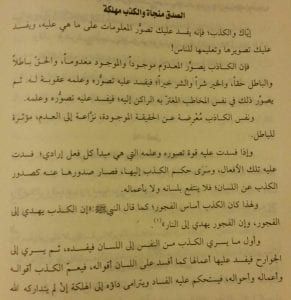 الصدق منجاة والكذب مهلكة
إيَّاك والكذب؛ فإنه يفسد عليك تصوّر المعلومات على ما هي عليه، ويفسد
عليك تصويرها وتعليمها للناس!
فإن الكاذب يصوِّر المعدوم موجوداً والموجود معدوماً، والحق باطلاً
والباطل حقاً، والخير شراً والشر خيراً؛ فيفسد عليه تصوره وعلمه عقوبة له. ثم
يصوِّر ذلك في نفس المخاطب المغتر به الراكن إليه؛ فيفسد عليه تصوره وعلمه.
ونفس الكاذب مُعْرِضة عن الحقيقة الموجودة، نزَّاعة إلى العدم، مؤثرة
للباطل.
وإذا فسدت عليه قوة تصوره وعلمه التي هي مبدأ كل فعل إرادي؛ فسدت
عليه تلك الأفعال، وسَرَى حكم الكذب إليها، فصار صدورها عنه كصدور
الكذب عن اللسان؛ فلا ينتفع بلسانه ولا بأعماله.
ولهذا كان الكذب أساس الفجور؛ كما قال النبي ﷺ: «إن الكذب يهدي إلى
الفجور، وإن الفجور يهدي إلى النار»(١).
وأول ما يسري الكذب من النفس إلى اللسان فيفسده، ثم يسري إلى
الجوارح فيفسد عليها أعمالها كما أفسد على اللسان أقواله، فيعمّ الكذب أقواله
وأعماله وأحواله، فيستحكم عليه الفساد ويترامى داؤه إلى الهلكة إن لم يتداركه الله